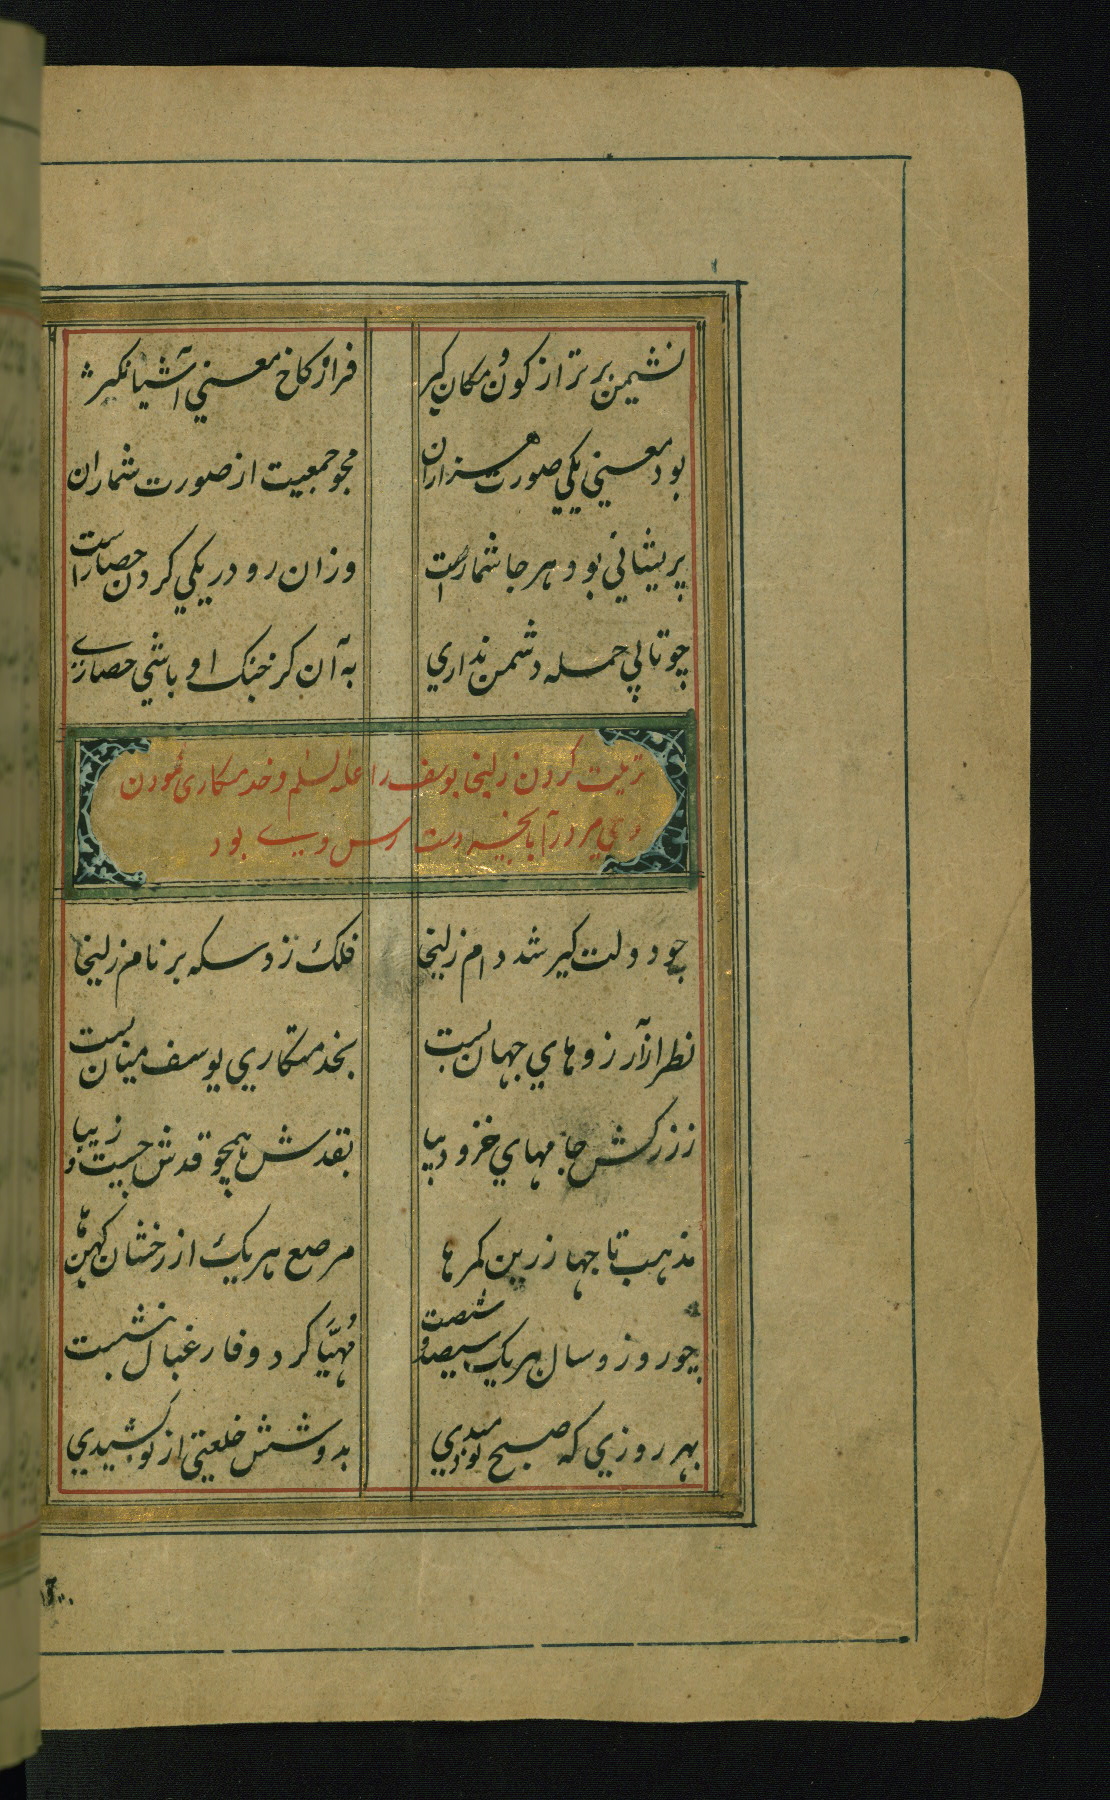 نشیمن برتر از کون و مکان گیر فراز کاخ معنی آشیان گیر
بود معنی یکی صورت هزاران مجو جمعیت از صورت شماران
پریشانی بود هر جا شمارست وزان رو در یکی کردن حصارست
چو تابی حمله دشمن نداری به آن کز جنگ او باشی حصاری
تربیت کردن زلیخا یوسف را علیه السلم و خدمتکاری نمودن
وی مر ورا بانچه دست رس وی بود
چو دولت گیر شد دام زلیخا فلک زد سکه بر نام زلیخا
نظر از آرزوهای جهان بست بخدمتکاری یوسف میان بست
ززرکش جامهای خز و دیبا بقدش همچو قدش چست و زیبا
مذهب تاجها زرین کمرها مرصع هر یک از رخشان گهرها
چو روز و سال هر یک سیصد و شصت مهیا کرد و فارغبال نشست
بهر روزی که صبح نو دمیدی بدوشش خلعتی از نو کشیدی